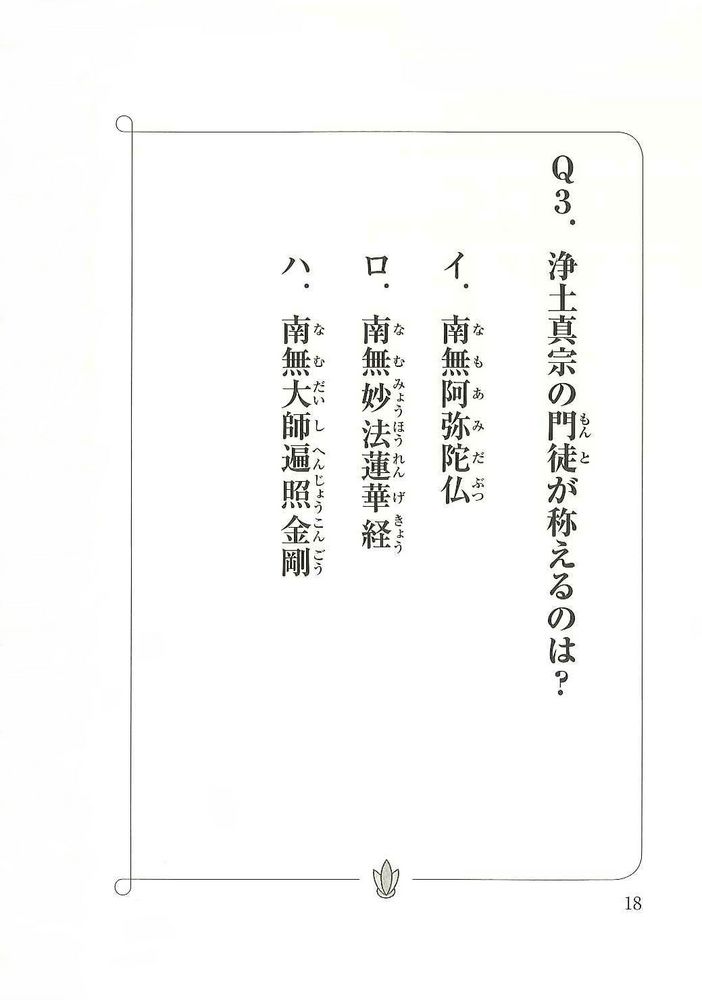 Q3. 浄土真宗の門徒が称えるのは?
もんと
イ. 南無阿弥陀仏
なもあみだぶつ
ロ. 南無妙法蓮華経
なむみょうほうれんげきょう
ハ. 南無大師遍照金剛
なむだいしへんじょうこんごう
18